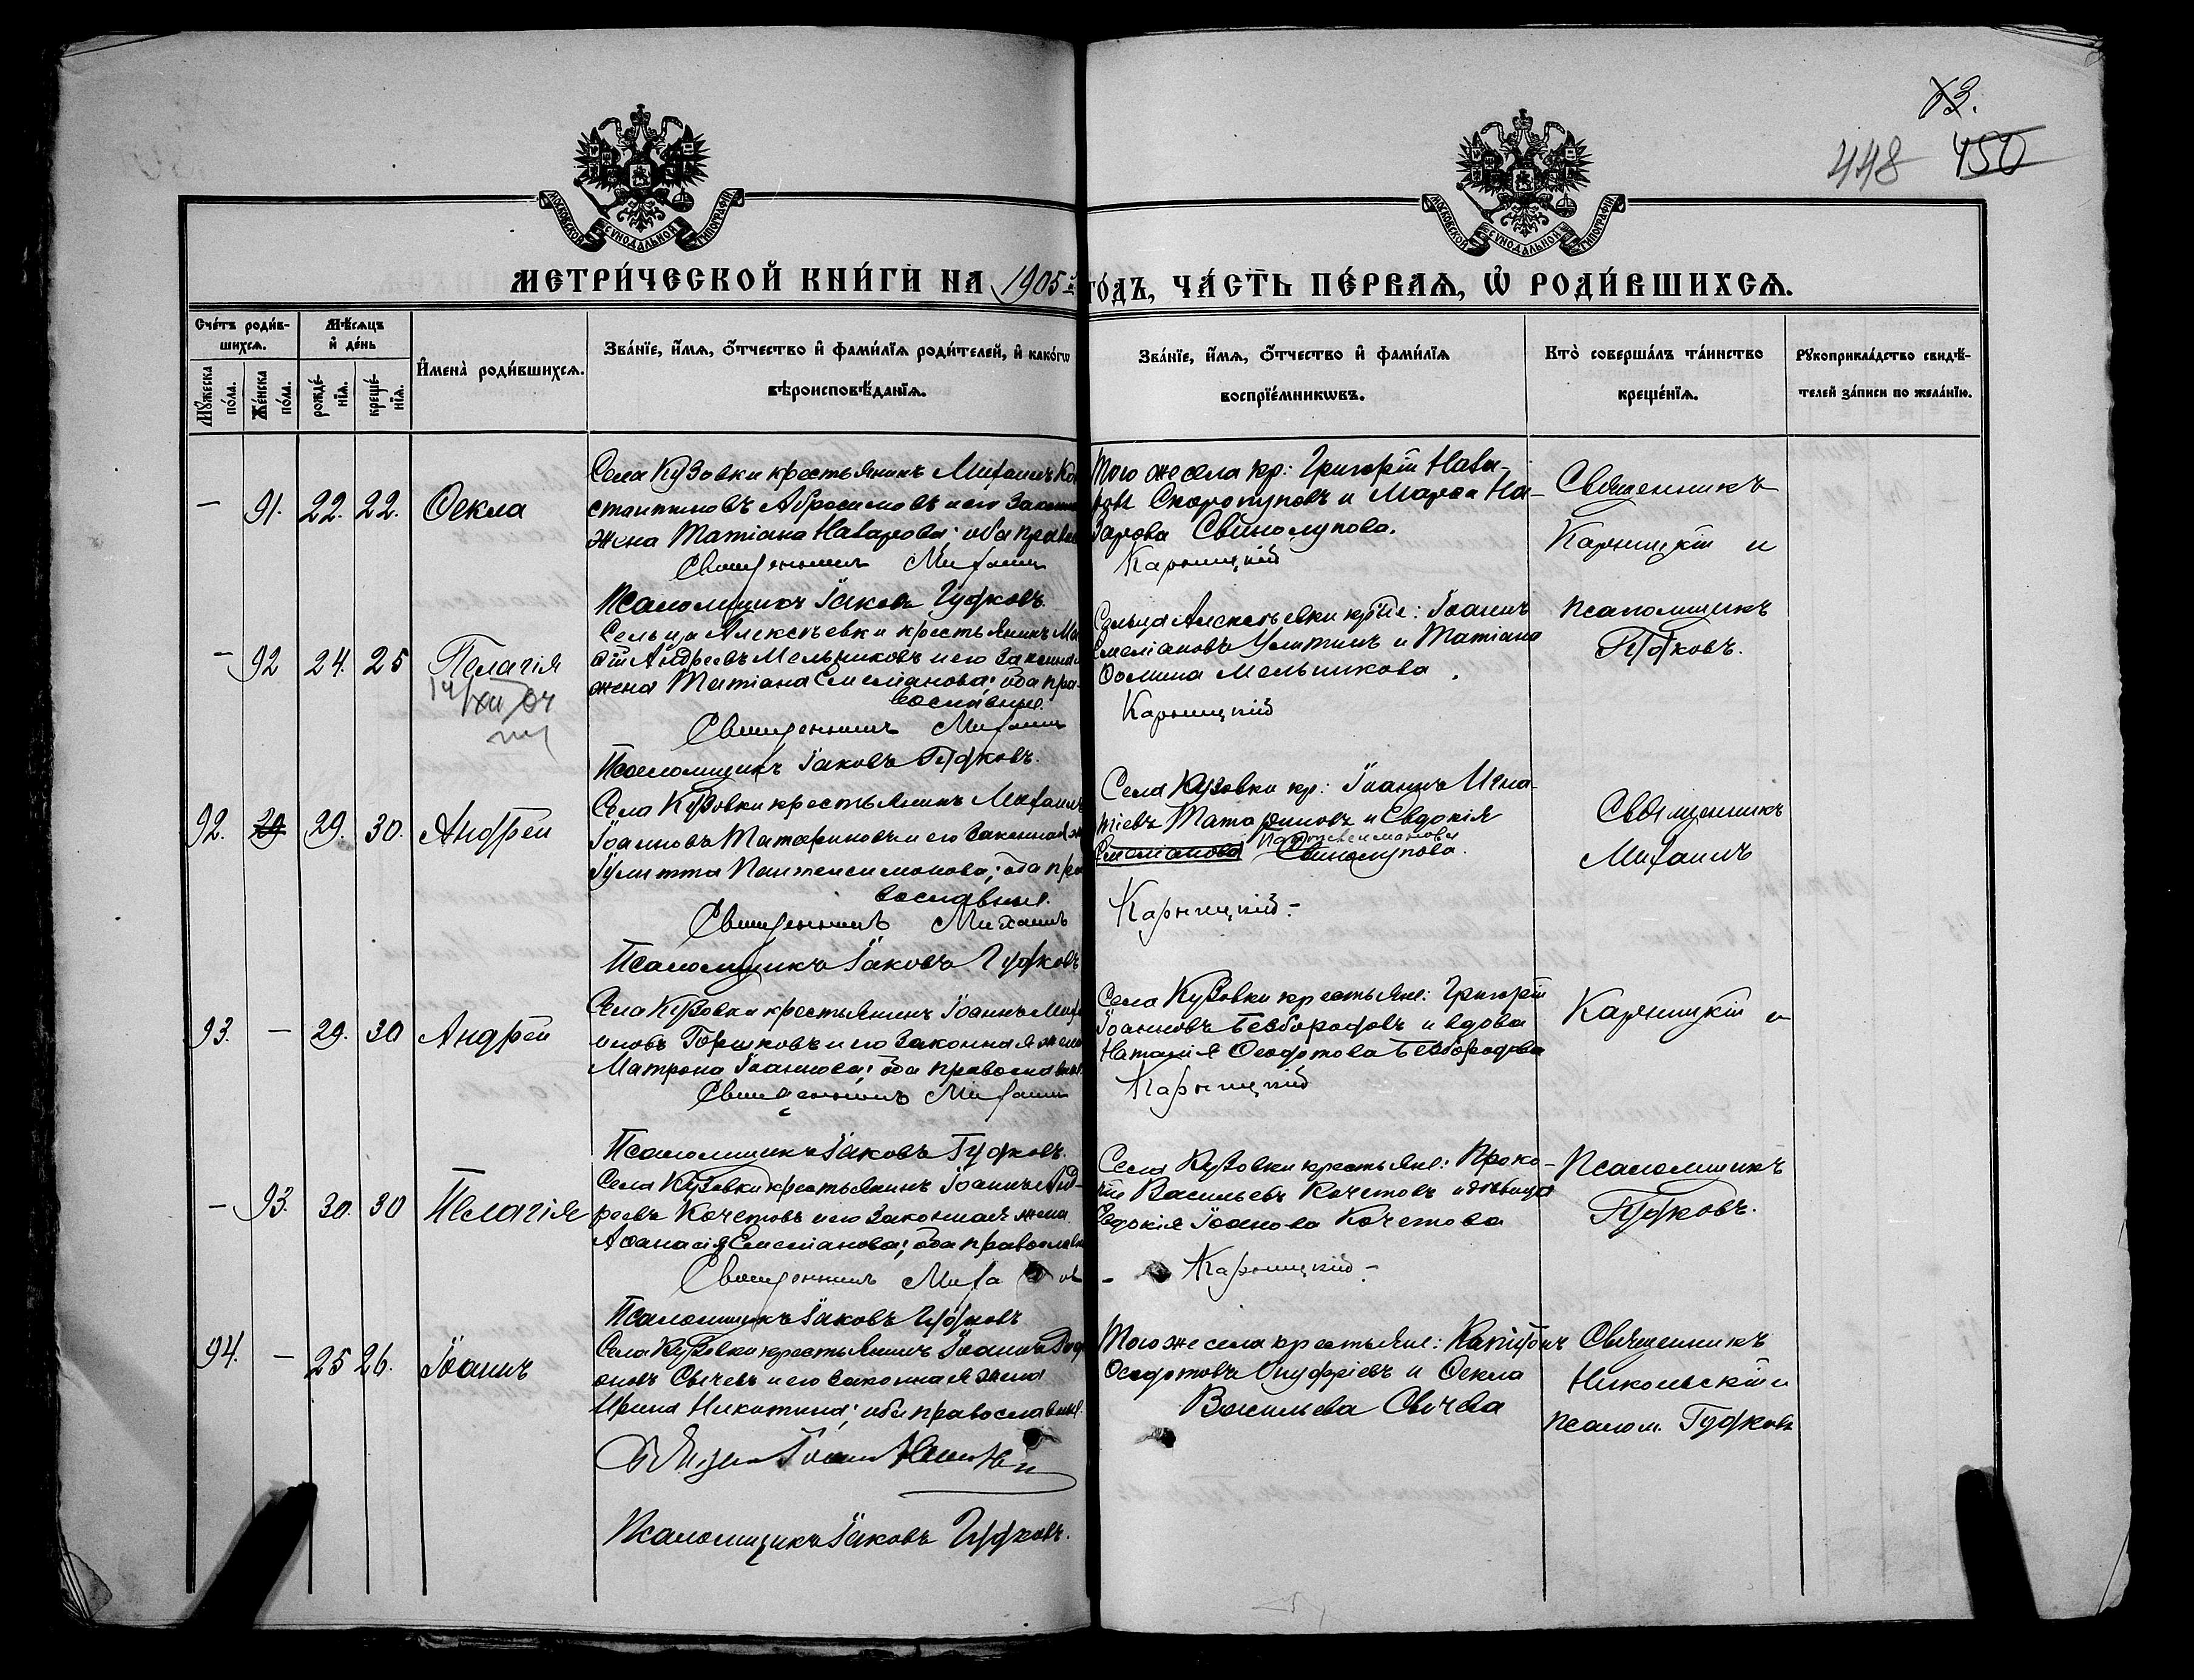 83.
448 450
МОСКОВСКОЙ СУНОДАЛЬНОЙ ТИПОГРАФІИ
МОСКОВСКОЙ СУНОДАЛЬНОЙ ТИПОГРАФІИ
МЕТРИ́ЧЕСКОЙ КНИ́ГИ НА 1905й ГО́ДЪ, ЧА́СТЬ ПЕ́РВАѦ, Ѡ҆ РОДИ́ВШИХСѦ.
Сче́тъ роди́в-
шихсѧ.
Мѣ́сѧцъ
и҆ де́нь
Мꙋ́жеска
по́ла.
Же́нска
по́ла.
рожде́-
нїѧ.
креще́-
нїѧ.
И҆мена̀ роди́вшихсѧ.
Зва́нїе, и҆́мѧ, ѻ҆́тчество и҆ фами́лїѧ роди́телей, и҆ како́гѡ
вѣроисповѣ́данїѧ.
Зва́нїе, и҆́мѧ, ѻ҆́тчество и҆ фами́лїѧ
воспрїе́мникѡвъ.
Кто̀ соверша́лъ та́инство
креще́нїѧ.
Рꙋкоприкла́дство свидѣ́-
телей за́писи по жела́нїю.
— 91. 22. 22. Ѳекла
Села Кузовки крестьянинъ Михаилъ Кон
стантиновъ Абросимовъ и его законная
жена Татіана Назарова; оба правос
Священникъ Михаилъ
Псаломщикъ Іаковъ Гудковъ.
Того же села кр: Григорій Наза-
ровъ Скоротуповъ и Марѳа На-
зарова Свинолупова.
Карницкій
Священникъ
Карницкій и
псаломщикъ
Гудковъ.
— 92 24. 25 Пелагія
14/XII 04
Сельца Алексѣевки крестьянинъ Ма
ѳій Андреевъ Мельниковъ и его законная
жена Татіана Емеліанова; оба пра-
вославные.
Священникъ Михаилъ
Псаломщикъ Іаковъ Гудковъ.
Сельца Алексѣевки крые: Іоаннъ
Емеліановъ Улитинъ и Татіана
Ѳомина Мельникова.
Карницкій
92. 29 29. 30. Андрей
Села Кузовки крестьянинъ Михаилъ
Іоанновъ Татариновъ и его законная ж
Іулитта Пантелеимонова; оба пра
вославные.
Священникъ Михаилъ
Псаломщикъ Іаковъ Гудковъ
Села Кузовки кр: Іоаннъ Игна-
тіевъ Татариновъ и Евдокія
Пантелеимонова
Емеліанова Свинолупова.
Карницкій.
Священникъ
Михаилъ
Карницкій и
псаломщикъ
Гудковъ.
93. — 29. 30 Андрей
Села Кузовки крестьянинъ Іоаннъ Миха
иловъ Горшковъ и его законная жена
Матрона Іоаннова; оба православные.
Священникъ Михаилъ
Псаломщикъ Іаковъ Гудковъ.
Села Кузовки крестьяне: Григорій
Іоанновъ Безбородовъ и вдова
Наталія Ѳеодотова Безбородова
Карницкій
— 93. 30. 30 Пелагія
Села Кузовки крестьянинъ Іоаннъ Анд-
реевъ Кочетовъ и его законная жена
Аѳанасія Емеліанова; оба православн
Священникъ Миха
Псаломщикъ Іаковъ Гудковъ
Села Кузовки крестьяне: Проко-
пій Васильевъ Кочетовъ и дѣвица
Евдокія Іоанова Кочетова
Карницкій
94. — 25 26. Іоаннъ
Села Кузовки крестьянинъ Іоаннъ Роді
оновъ Сычевъ и его законная жена
Ирина Никитина; оба православные.
Псаломщикъ Іаковъ Гудковъ.
Того же села крестьяне: Капитонъ
Ѳеодотовъ Онуфріевъ и Ѳекла
Васильева Сычева
Священникъ
Никольскій и
псалом. Гудковъ